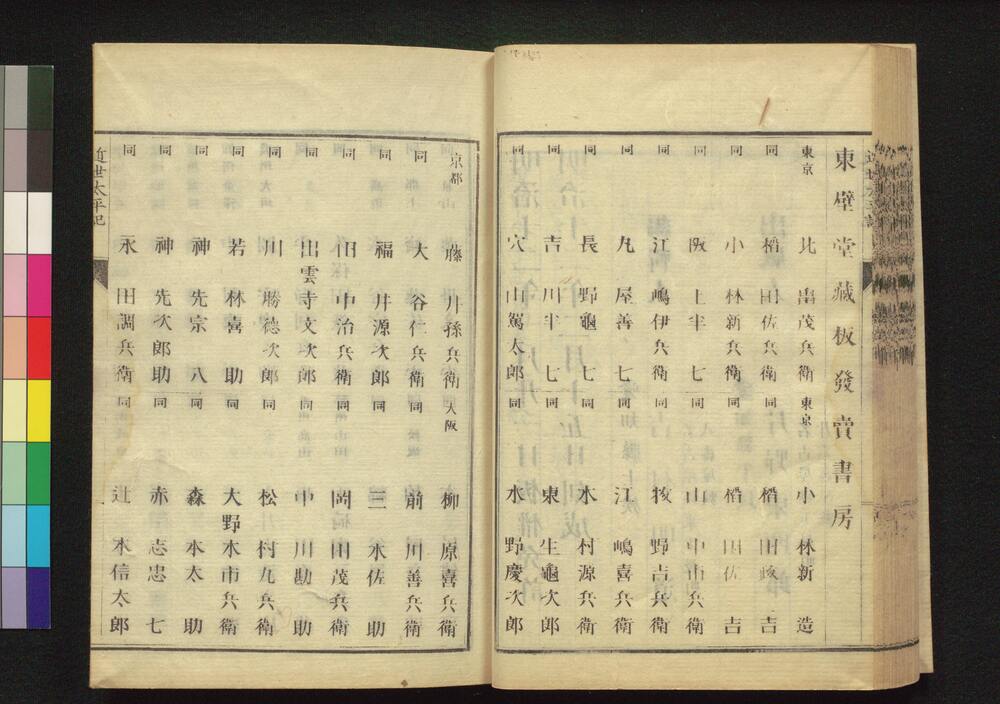 東壁堂藏板發賣書房
東京 北畠茂兵衛 東京 小林新造
同 稻田佐兵衛 同 稻田政吉
同 小林新兵衛 同 稻田佐吉
同 阪上半七 同 山中市兵衛
同 江嶋伊兵衛 同 牧野吉兵衛
同 丸屋善七 同 江嶋喜兵衛
同 長野龜七 同 木村源兵衛
同 吉川半七 同 東生龜次郎
同 穴山篤太郎 同 水野慶次郎
京都 藤井孫兵衛 大阪 柳原喜兵衛
同 大谷仁兵衛 同 前川善兵衛
同 福井源次郎 同 三木佐助
同 田中治兵衛 同 岡田茂兵衛
同 出雲寺文次郎 同 中川勘助
同 川勝德次郎 同 松村九兵衛
同 若林喜助 同 大野木市兵衛
同 神先宗八 同 森本太助
同 神先次郎助 同 赤志忠七
同 永田調兵衛 同 辻本信太郎
近世太平記